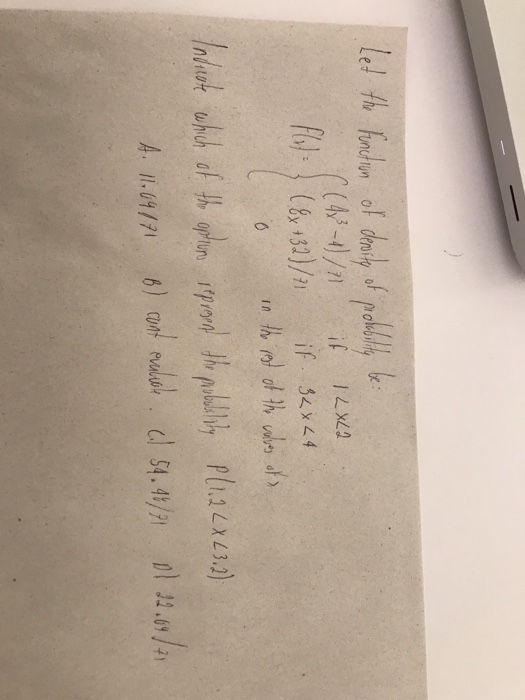 Let the function of density of probability be:
f(x) = { (4x³-4)/71 if 1<x<2
(8x+32)/71 if 3<x<4
0 in the rest of the values of x
Indicate which of the options represent the probability P(1.2<x<3.2)
A. 11.09/71 B) cant evaluate. C) 54.46/71 D) 22.69/71